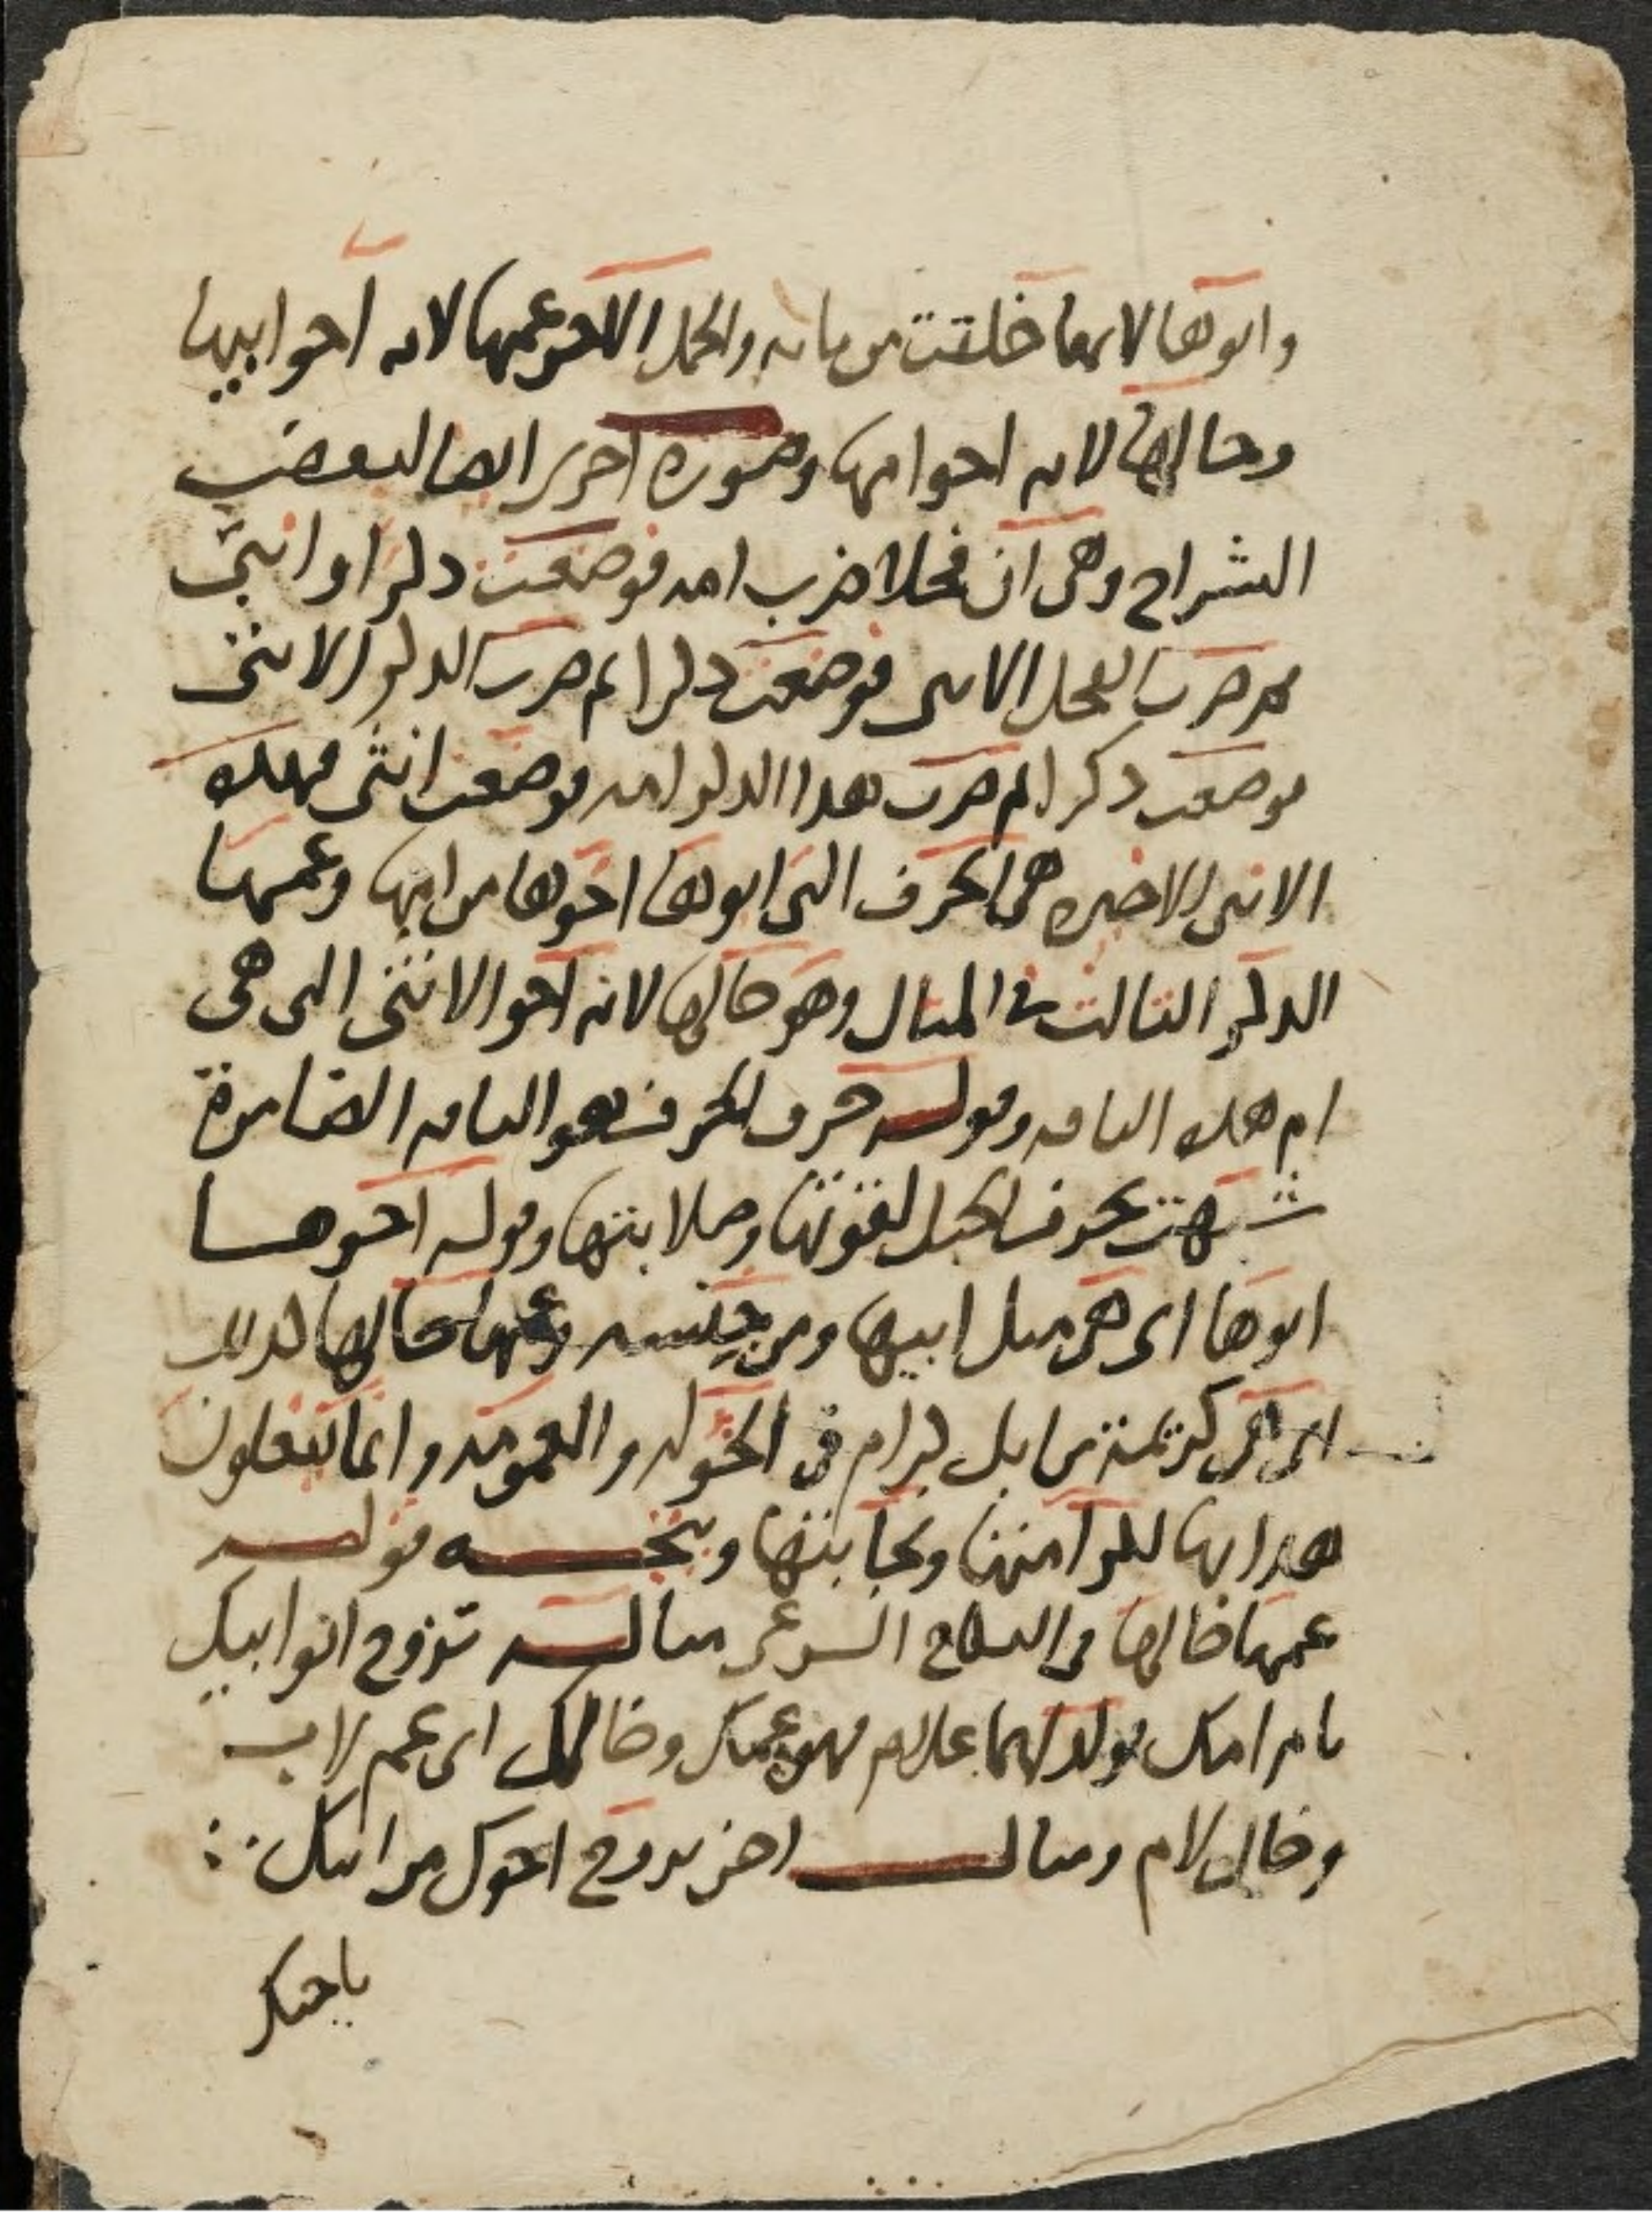 وابوها لانها خلقت من مائه والجمل الاخر عمها لانه اخو ابيها
وخالها لانه اخو امها وصورة اخرى ايضا لبعض
الشراح وهى ان فحلا ضرب امه فوضعت ذكرا او انثى
ثم ضرب الفحل الانثى فوضعت ذكرا ثم ضرب الذكر الانثى
فوضعت ذكرا ثم ضرب هذا الذكر امه فوضعت انثى فهذه
الانثى الاخيرة هى الحرف التى ابوها اخوها من امها وعمها
الذكر الثالث فى المثال وهو خالها لانه اخو الانثى التى هى
ام هذه الناقه وقوله حرف الحرف هو الناقه الضامرة
شبهت بحرف الجبل لقوتها وصلابتها وقوله اخوها
ابوها اى هى مثل ابيها ومن جنسه وعمها خالها كذلك
اى هى كريمة من ابل كرام فى الخوله والعمومه وانما يفعلون
هذا بها لكرامتها ونجابتها وينجه قوله
عمها خالها فى النكاح الشرعى مثاله تزوج ابو ابيك
بام امك فولد لهما غلام فهو عمك وخالك اى عم لاب
وخال لام ومثال اخر تزوج اخوك من ابيك
باختك